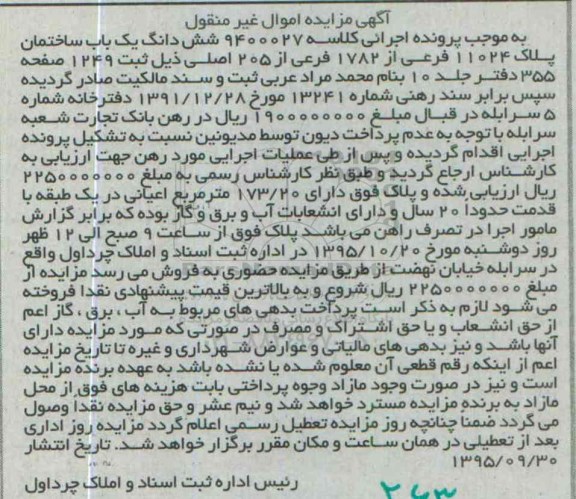 آگهی مزایده اموال غیر منقول
به موجب پرونده اجرائی کلاسه ۹۴۰۰۰۲۷ شش دانگ یک باب ساختمان
پلاک ۱۱۰۲۴ فرعی از ۱۷۸۲ فرعی از ۲۰۵ اصلی ذیل ثبت ۱۲۴۹ صفحه
۳۵۵ دفتر جلد ۱۰ بنام محمد مراد عربی ثبت و سند مالکیت صادر گردیده
سپس برابر سند رهنی شماره ۱۳۲۴۱ مورخ ۱۳۹۱/۱۲/۲۸ دفترخانه شماره
۵ سرابله در قبال مبلغ ۱۹۰۰۰۰۰۰۰۰ ریال در رهن بانک تجارت شعبه
سرابله با توجه به عدم پرداخت دیون توسط مدیونین نسبت به تشکیل پرونده
اجرایی اقدام گردیده و پس از طی عملیات اجرایی مورد رهن جهت ارزیابی به
کارشناس ارجاع گردید و طبق نظر کارشناس رسمی به مبلغ ۲۲۵۰۰۰۰۰۰۰
ریال ارزیابی شده و پلاک فوق دارای ۱۷۳/۲۰ مترمربع اعیانی در یک طبقه با
قدمت حدودا ۲۰ سال و دارای انشعابات آب و برق و گاز بوده که برابر گزارش
مامور اجرا در تصرف راهن می باشد پلاک فوق از ساعت ۹ صبح الی ۱۲ ظهر
روز دوشنبه مورخ ۱۳۹۵/۱۰/۲۰ در اداره ثبت اسناد و املاک چرداول واقع
در سرابله خیابان نهضت از طریق مزایده حضوری به فروش می رسد مزایده از
مبلغ ۲۲۵۰۰۰۰۰۰۰ ریال شروع و به بالاترین قیمت پیشنهادی نقدا فروخته
می شود لازم به ذکر است پرداخت بدهی های مربوط به آب ، برق ، گاز اعم
از حق انشعاب و یا حق اشتراک و مصرف در صورتی که مورد مزایده دارای
آنها باشد و نیز بدهی های مالیاتی و عوارض شهرداری و غیره تا تاریخ مزایده
اعم از اینکه رقم قطعی آن معلوم شده یا نشده باشد به عهده برنده مزایده
است و نیز در صورت وجود مازاد وجوه پرداختی بابت هزینه های فوق از محل
مازاد به برنده مزایده مسترد خواهد شد و نیم عشر و حق مزایده نقدا وصول
می گردد ضمنا چنانچه روز مزایده تعطیل رسمی اعلام گردد مزایده روز اداری
بعد از تعطیلی در همان ساعت و مکان مقرر برگزار خواهد شد. تاریخ انتشار
۱۳۹۵/۰۹/۳۰
رئیس اداره ثبت اسناد و املاک چرداول